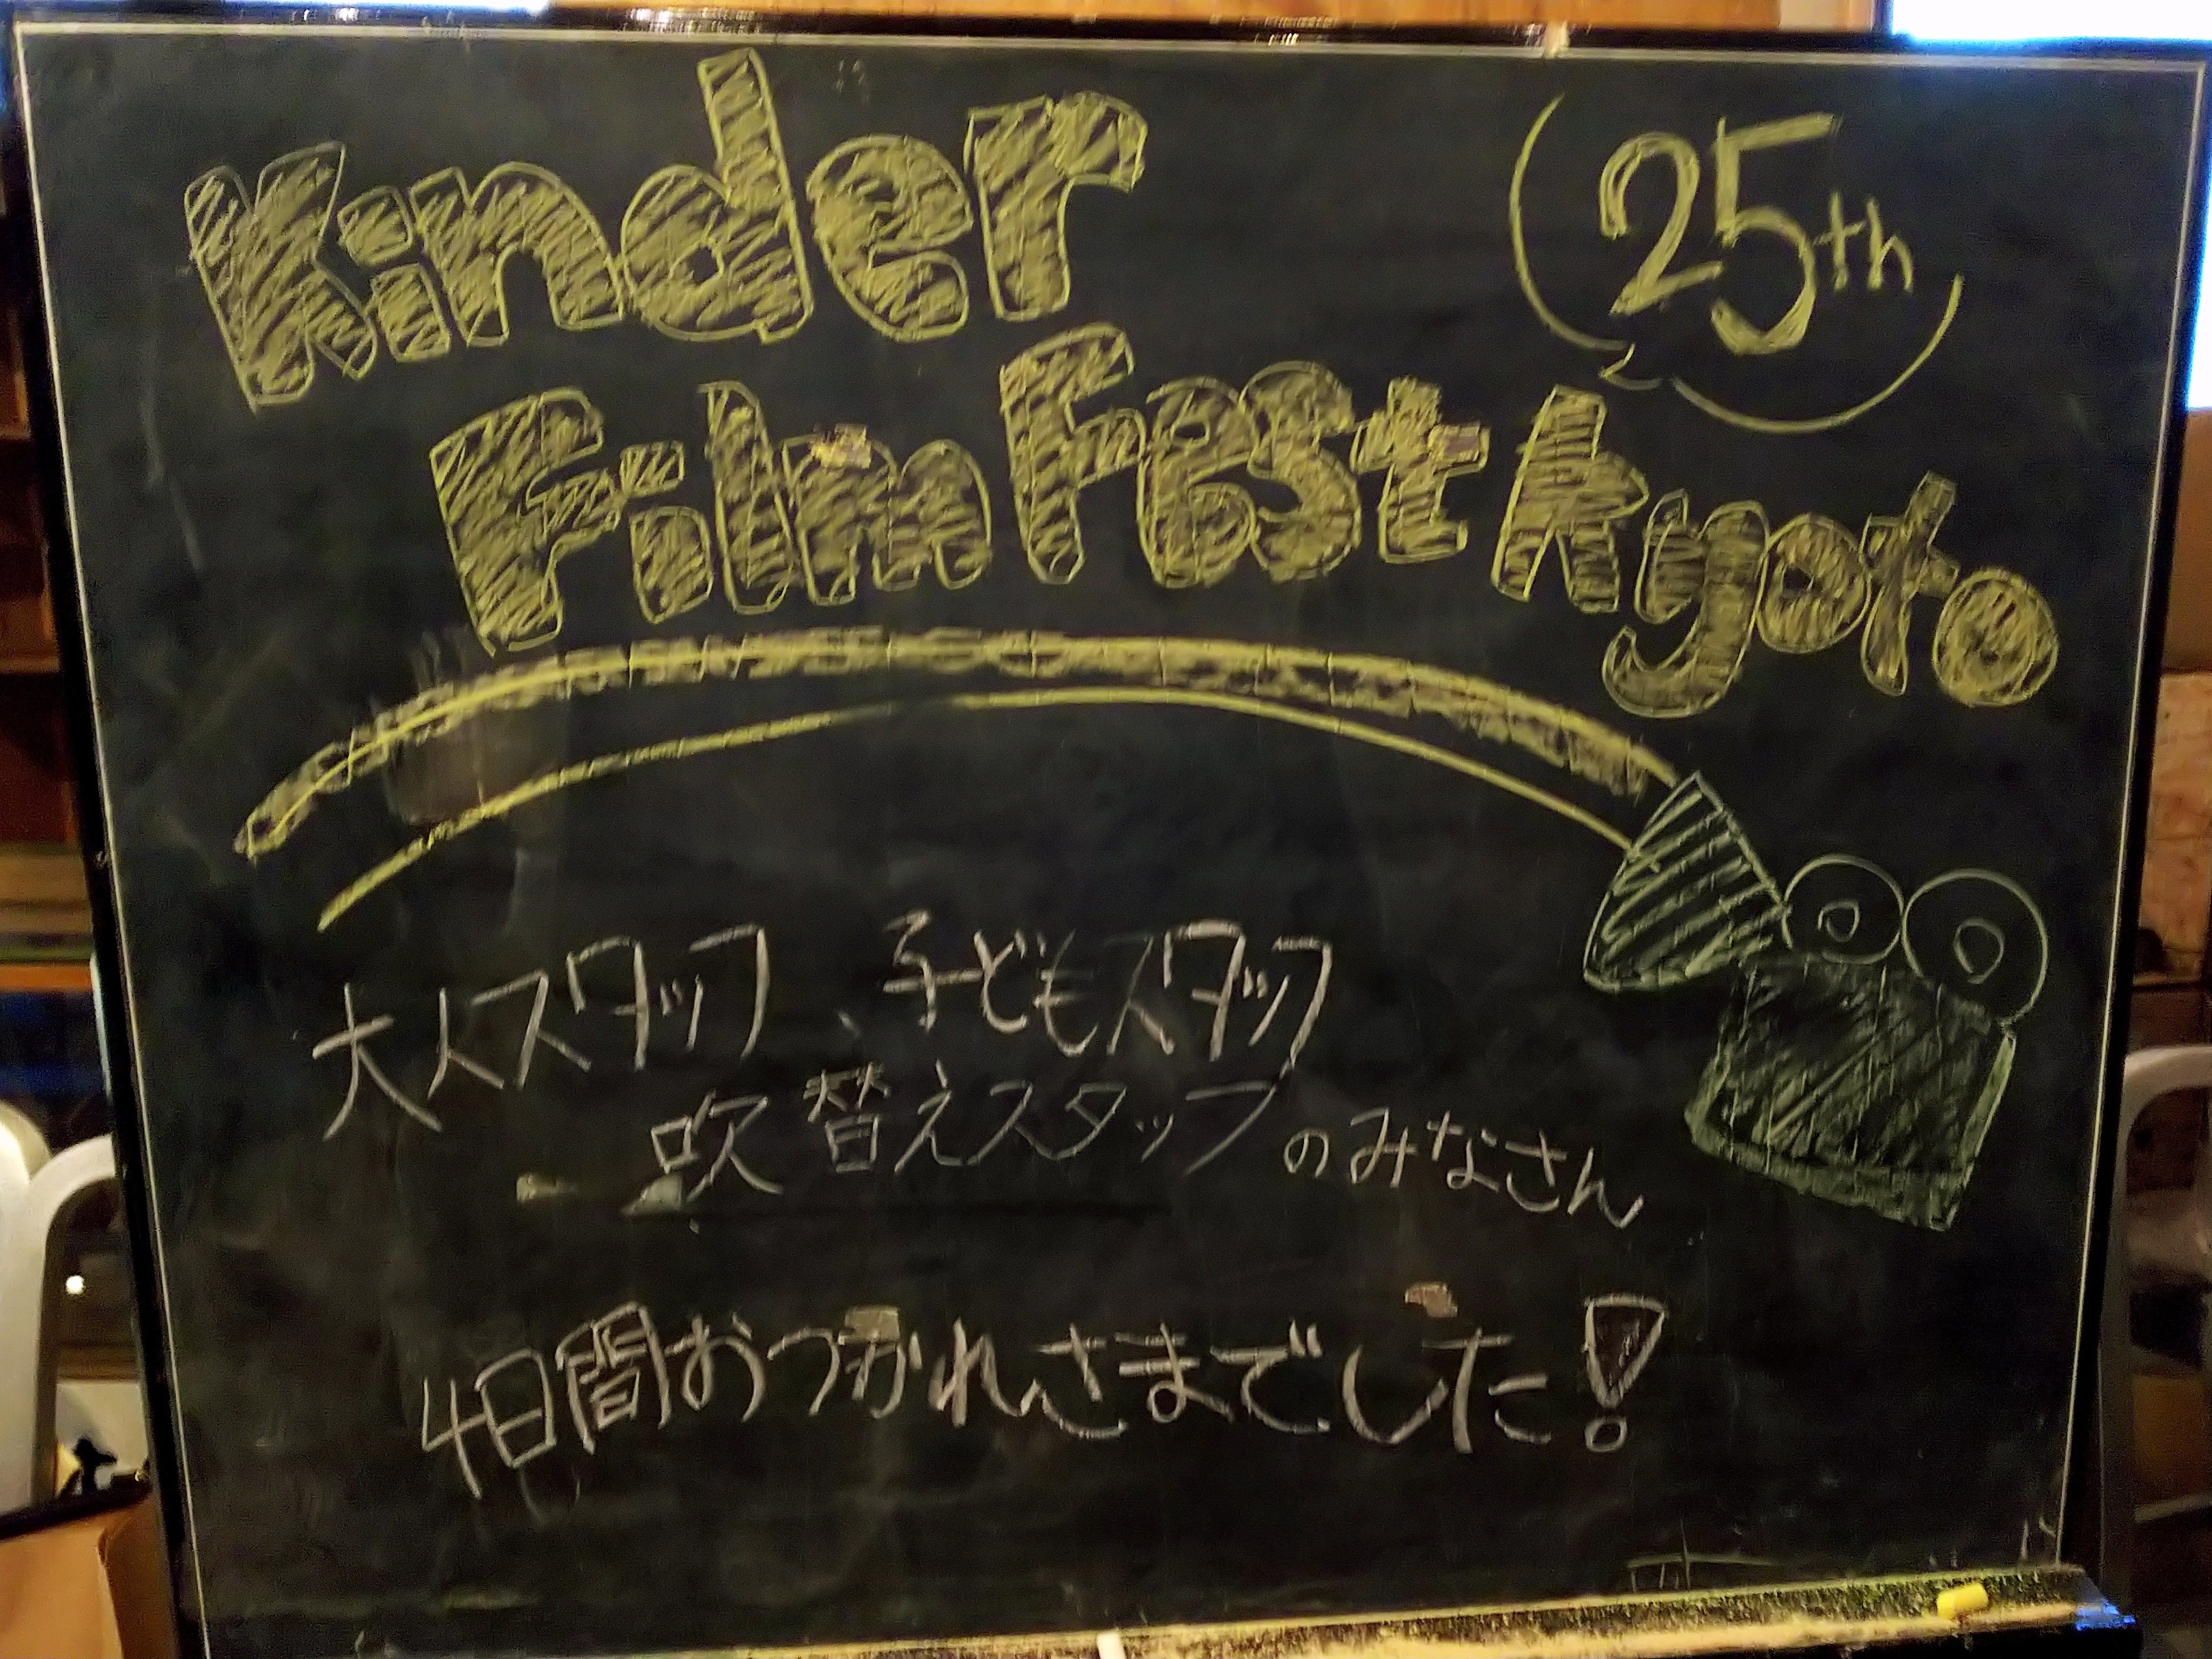 Kinder
25th
Film Fest Kyoto
大人スタッフ、子どもスタッフ
吹替えスタッフのみなさん
4日間おつかれさまでした!